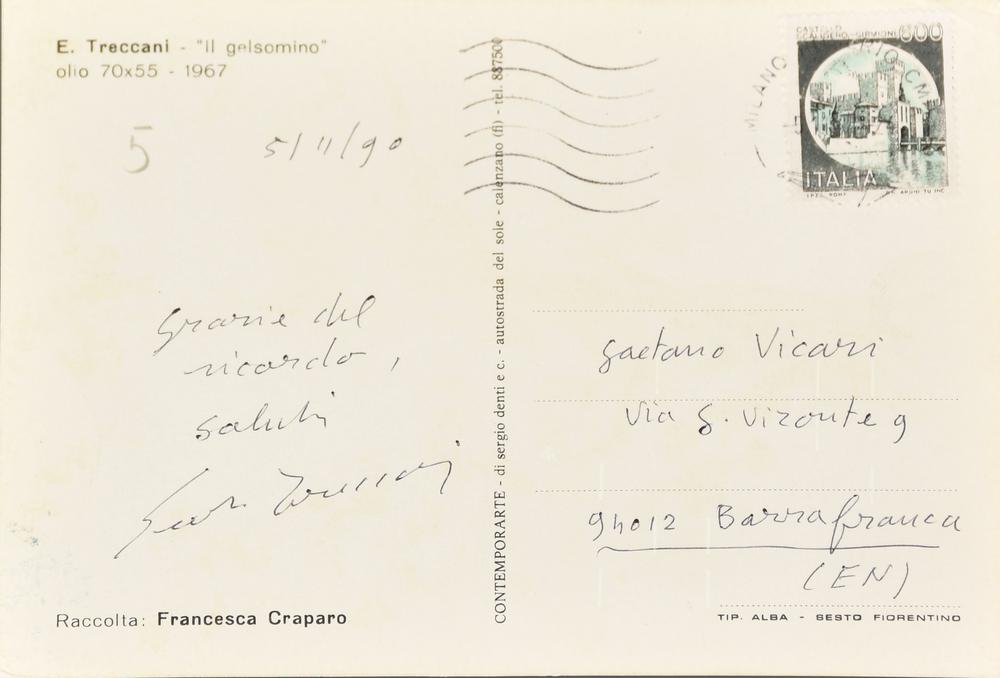 E. Treccani - "Il gelsomino"
olio 70x55 - 1967
5
5/11/90
grazie del
ricordo,
saluti
Raccolta: Francesca Craparo
CONTEMPORARTE - di sergio denti e c. - autostrada del sole - calenzano (fi) - tel. 887500
MILANO
CASTELLO
SCALIGERO-SIRMIONE 800
ITALIA
gaetano Vicari
Via G. Vizonte 9
94012 Barrafranca
(EN)
TIP. ALBA - SESTO FIORENTINO